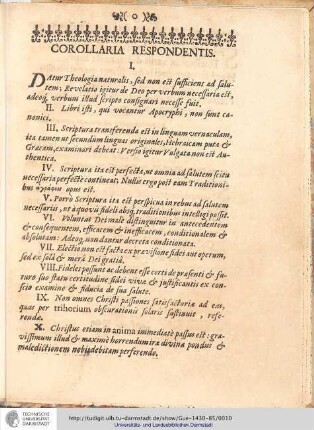 COROLLARIA RESPONDENTIS.
I.
DAtur Theologia naturalis, sed non est sufficiens ad salu-
tem; Revelatio igitur de Deo per verbum necessaria est,
Adeoq; verbum illud scripto consignari necesse fuit.
II. Libri isti, qui vocantur Apocryphi, non sunt ca-
nonici.
III. Scriptura transferenda est in linguam vernaculam,
ita tamen ut secundum linguas originales, Hebraicam puta &
Græcam, examinari debeat. Versio igitur Vulgata non est Au-
thentica.
IV. Scriptura ita est perfecta, ut omnia ad salutem scitu
necessaria perfectè contineat; Nullis ergo post eam Tradition-
bus opus est.
V. Porrò Scriptura ita est perspicua in rebus ad salutem
necessariis, ut à quovis fideli absq; traditionibus intelligi possit.
VI. Voluntas Dei male distinguitur in antecedentem
& consequentem, efficacem & inefficacem, conditionalem &
absolutam: Adeoq; non dantur decreta conditionata.
VII. Electio non est facta ex prævisione fidei aut operum,
sed ex solâ & merâ Dei gratiâ.
VIII. Fideles possunt ac debent esse certi de præsenti & fu-
turo suo statu certitudine fidei vivæ & justificantis ex con-
scio examine & fiducia de sua salute.
IX. Non omnes Christi passiones satisfactoriæ ad eas,
quas per trihorium obscurationis solaris sustinuit, refe-
rendæ.
X. Christus etiam in anima immediatè passus est: gra-
vissimum illud & maximè horrendum iræ divinæ pondus &
maledictionem nobis debitam perferendo.
TECHNISCHE
UNIVERSITÄT
DARMSTADT
http://tudigit.ulb.tu-darmstadt.de/show/Gue-1430-85/0010
Universitäts- und Landesbibliothek Darmstadt